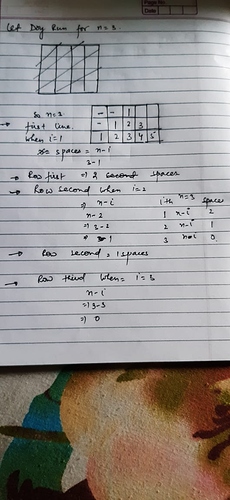 Page No.
Date
Let Dry Run for n=3.
So n=3
- - 1
→ first line.
- 1 2 3
when i=1
1 2 3 4 5
spaces = n-i
3-1
→ Row first => 2 second spaces
→ Row second when i=2
=> n-i
n-2
=> 3-2
=> 1
n=3
ith space
1 n-i 2
2 n-i 1
3 n-i 0
→ Row second = 1 spaces
→ Row third when = i=3
n-i
=> 3-3
=> 0